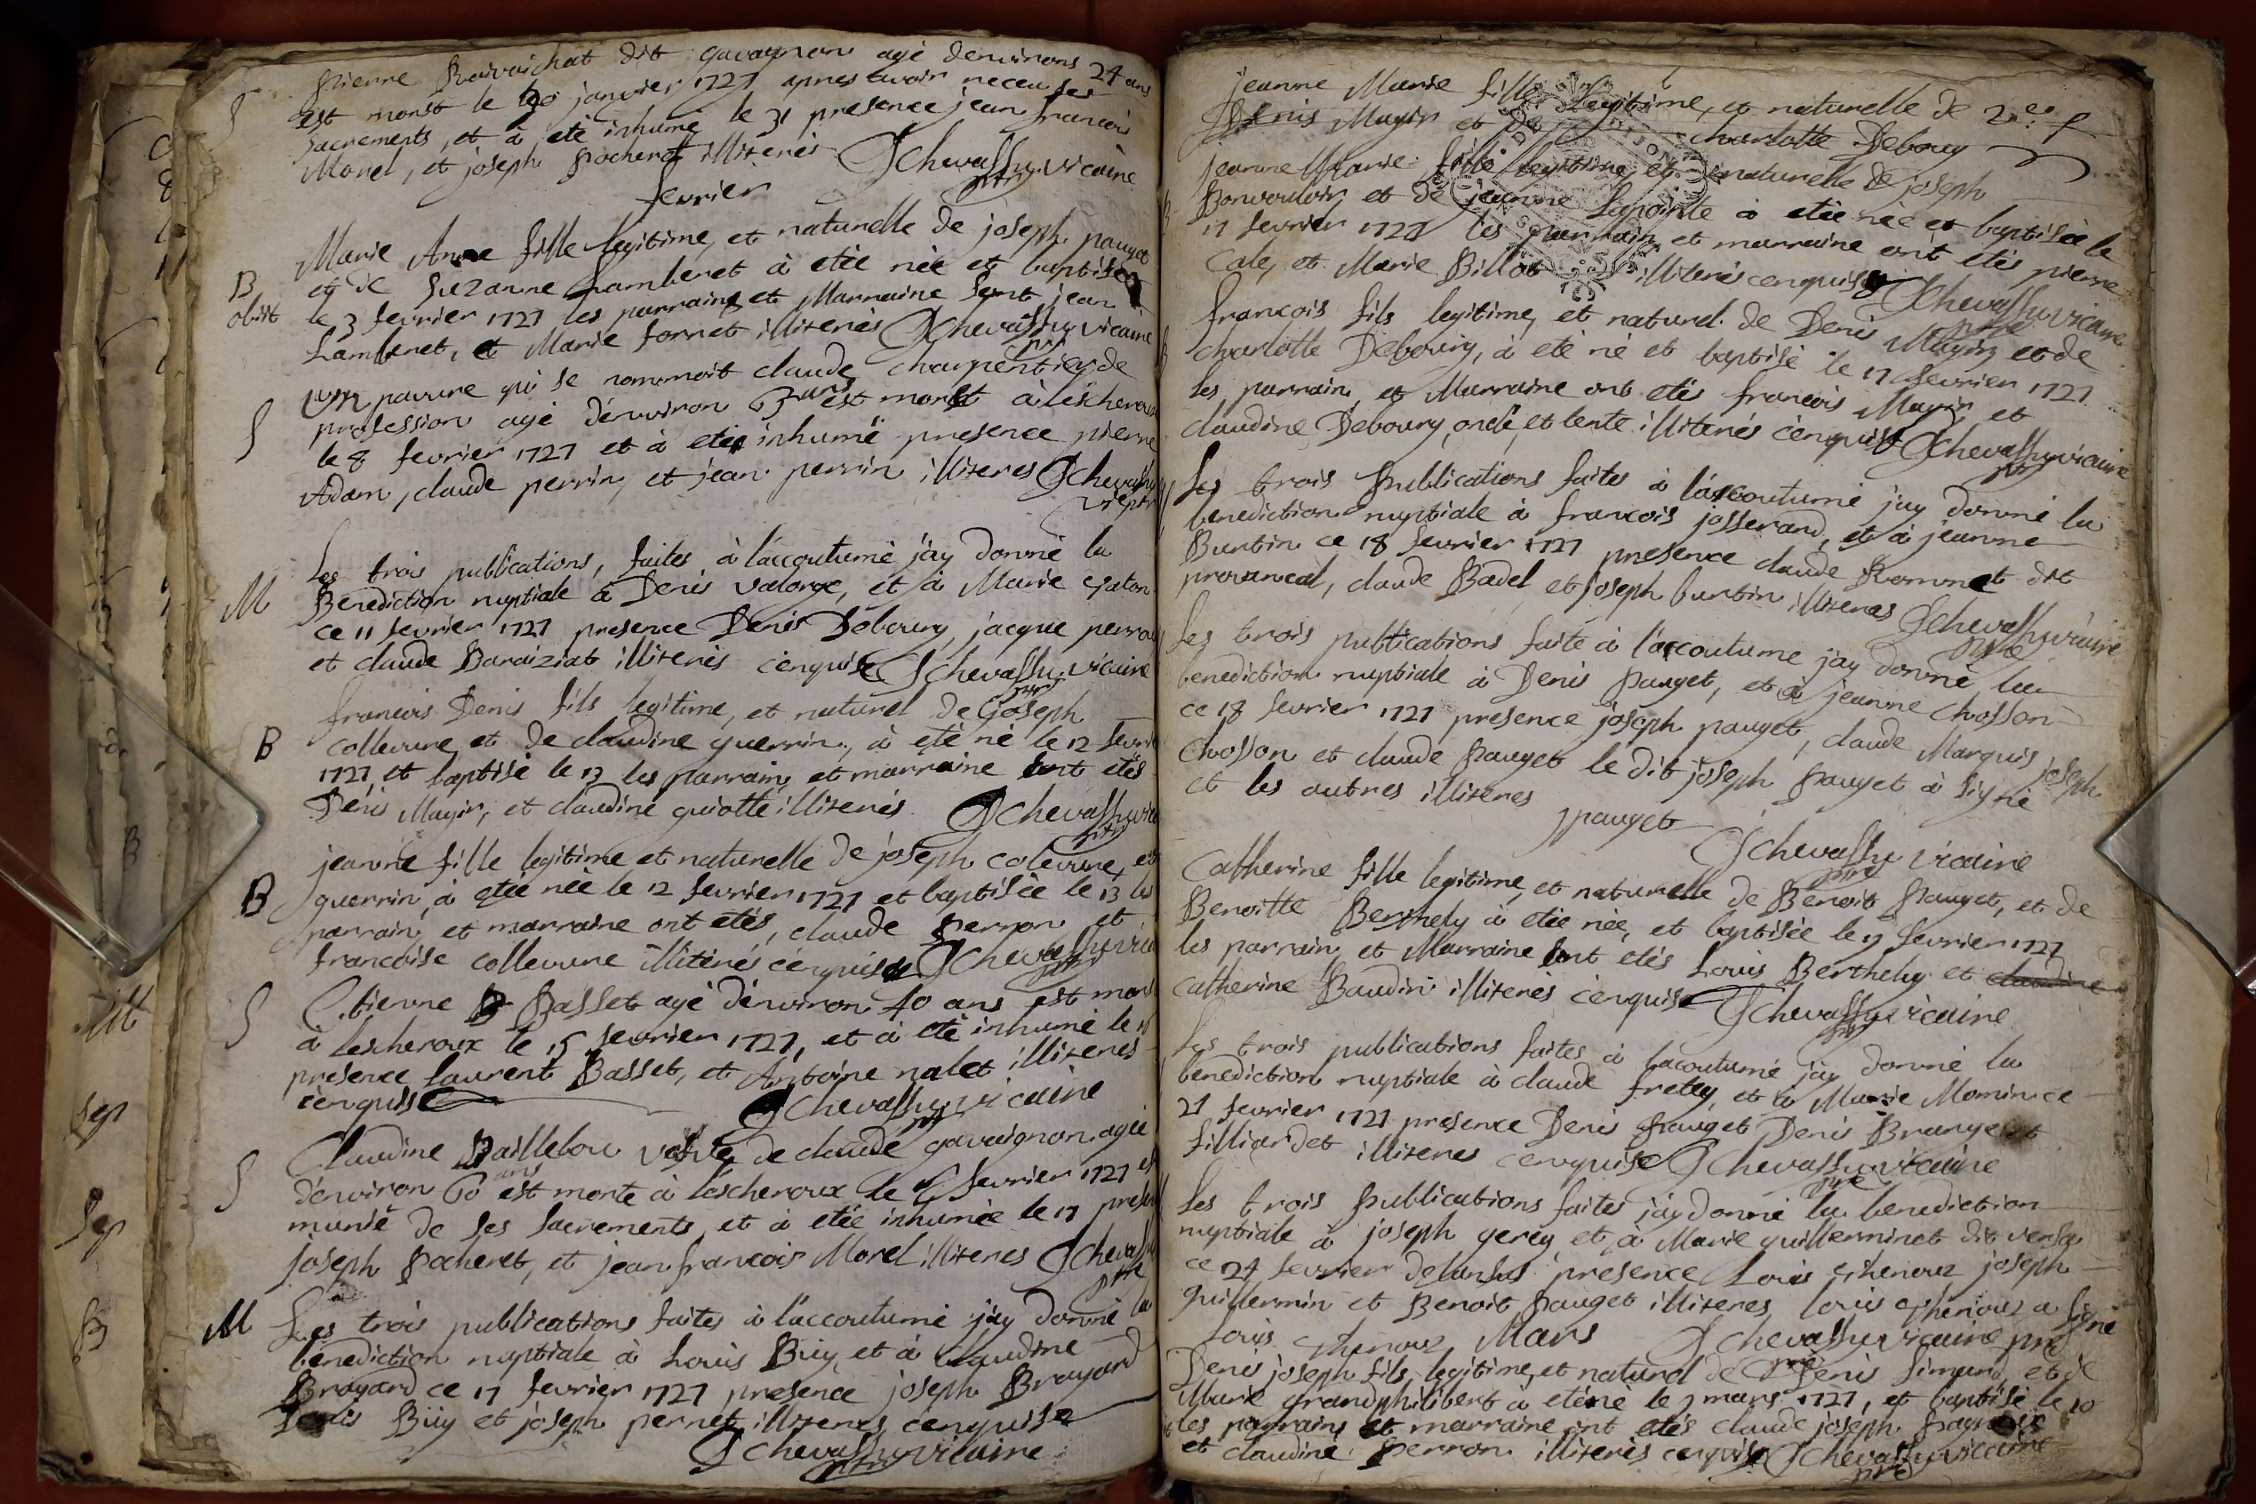 pierre Ravaichat dit gavagnon agé denvirons 24 ans
S est mort le 30 janvier 1727 apres avoir receu ses
sacrements, et à eté inhumé le 31 presence jean francois
Morel, et joseph pocheret illiterés Jchevassu vicaire
fevrier ptre
Marie Anne fille legitime, et naturelle de joseph pauget
B et de suzanne Lamberet à etée née et baptisée
obiit le 3 fevrier 1727 les parrains et Marraine sont jean
Lamberet, et Marie fornet illiterés Jchevassu vicaire
ptre
un pauvre qui se nommoit claude charpentier de
profession agé d'environ 63 ans est mort à lescheroux
S le 8 fevrier 1727 et à eté inhumé presence pierre
Adam, claude perrin, et jean perrin illiteres Jchevassu
v ptre
Les trois publications, faites à l'accoutumé j'ay donné la
M Benediction nuptiale à Denis valorge, et à Marie gaton
ce 11 fevrier 1727 presence Denis Deboury, jacque perron
et claude Baraiziat illiterés cenquise Jchevassu vicaire
ptre
francois Denis fils legitime, et naturel de joseph
B collevure, et de claudine guerrin, à eté né le 12 fevrier
1727, et baptisé le 13 les parrain, et marraine ont etés
Denis Magin, et claudine guiotte illiterés. Jchevassu vic
ptre
jeanne fille legitime et naturelle de joseph colevure, et
B guerrin, à etée née le 12 fevrier 1727 et baptisée le 13 les
parrain, et marraine ont etés, claude perron et
francoise collevure illiterés cenquise Jchevassu vica
ptre
S Etienne Basset agé d'environ 40 ans est mort
à lescheroux le 15 fevrier 1727, et à eté inhumé le 16
presence laurent Basset, et Antoine nalet illiteres
cenquise Jchevassu vicaire
ptre
Claudine Baillebou veuve de claude gavaignon agée
S d'environ 60 ans est morte à lescheroux le fevrier 1727 et
munie de ses sacrements, et à etée inhumée le 17 presen
joseph pocheret, et jean francois Morel illiteres Jchevassu
ptre
M Les trois publications faites à l'accoutumé j'ay donné la
benediction nuptiale à Louis Buy, et à Claudine
Brayard ce 17 fevrier 1727 presence joseph Brayard
Buy et joseph pernet illiteres cenquise
Jchevassu vicaire
ptre
jeanne Marie fille legitime, et naturelle de
Denis Magin et de charlotte Deboury
jeanne Marie fille legitime, et naturelle de joseph
Bonvouloir, et de jeanne Lapointe à etée née et baptisée le
17 fevrier 1727 les parrain, et marraine ont etés pierre
Cale, et Marie Billot illiterés cenquise Jchevassu vicaire
ptre
francois fils legitime, et naturel de Denis Magin et de
charlotte Deboury, à eté né et baptisé le 17 fevrier 1727
les parrain, et Marraine ont etés francois Magin et
claudine Deboury, oncle, et tente illiterés cenquise Jchevassu vicaire
ptre
Les trois publications faites à l'accoutumé j'ay donné la
benediction nuptiale à francois josserand, et à jeanne
Burtin ce 18 fevrier 1727 presence claude Romnet dit
provencal, claude Badel, et joseph burtin illiteres Jchevassu vicaire
ptre
Les trois publications faite à l'accoutume j'ay donné la
benediction nuptiale à Denis pauget, et à jeanne chosson
ce 18 fevrier 1727 presence joseph pauget, claude Marquis joseph
chosson et claude pauget le dit joseph pauget à signé
et les autres illiteres
jpauget Jchevassu vicaire
ptre
Catherine fille legitime, et naturelle de Benoit pauget, et de
Benoitte Berthely à etée née, et baptisée le 19 fevrier 1727
les parrain, et Marraine ont etés Louis Berthely et claudine
Catherine Baudin illiterés cenquise Jchevassu vicaire
ptre
Les trois publications faites à lacoutumé j'ay donné la
benediction nuptiale à claude fretey, et à Marie Momin ce
21 fevrier 1727 presence Denis pauget Denis Brange et
filliardet illiteres cenquise Jchevassu vicaire
ptre
Les trois publications faites j'ay donné la benediction
nuptiale à joseph gerey, et à Marie guillerminet dit
ce 24 fevrier presence Louis thenoux joseph
guillermin et Benoit pauget illiteres, louis thenoux a signé
Louis thenoux Mars Jchevassu vicaire ptre
Denis joseph fils, legitime, et naturel de Denis simard, et de
Marie grandphilibert à eté né le 9 mars 1727, et baptisé le 10
les parrain, et marraine ont etés claude joseph
et claudine perron illiterés cenquise Jchevassu vicaire
ptre